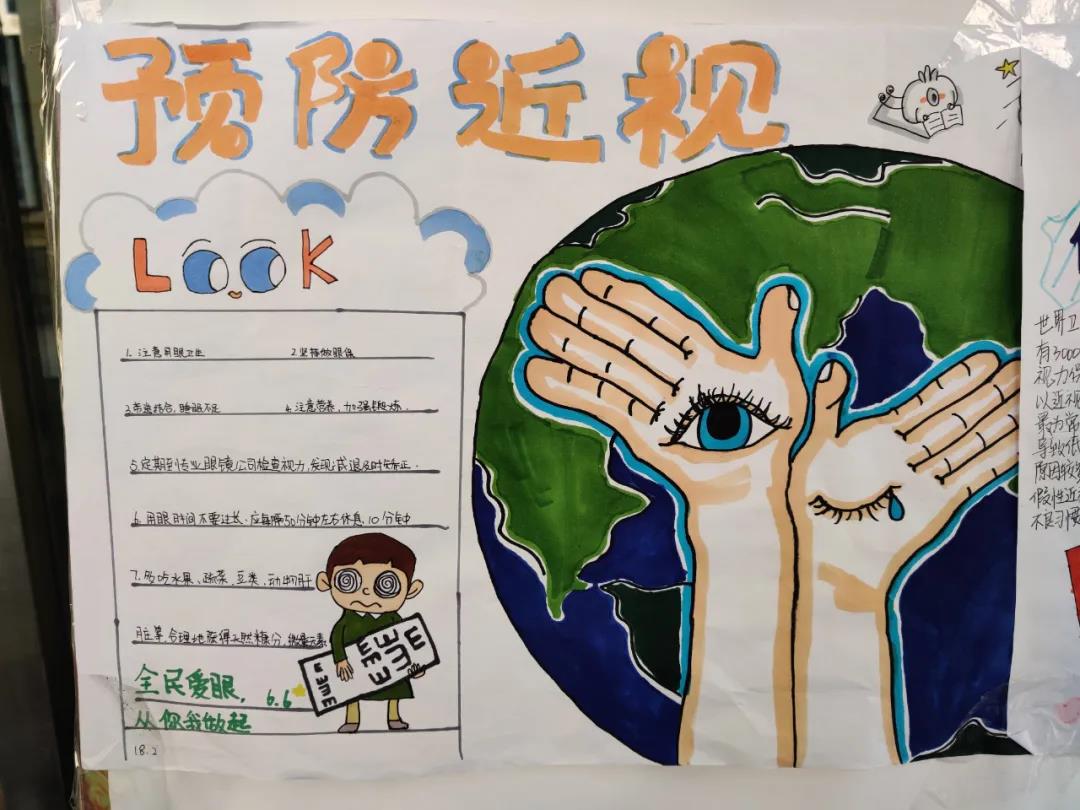 预防近视
LOOK
1. 注意用眼卫生
2. 坚持做眼保
3. 劳逸结合, 睡眠不足
4. 注意营养, 加强锻炼.
5. 定期到专业眼镜公司检查视力, 发现减退及时矫正.
6. 用眼时间不要过长, 应每隔50分钟左右休息10分钟
7. 多吃水果、蔬菜、豆类、动物肝
脏等, 合理地获得天然糖分, 微量元素
全民爱眼, 6.6
从你我做起
18.2
世界卫
有3000
视力
以近视
最为常
导致低
原因
假性近
不良习惯